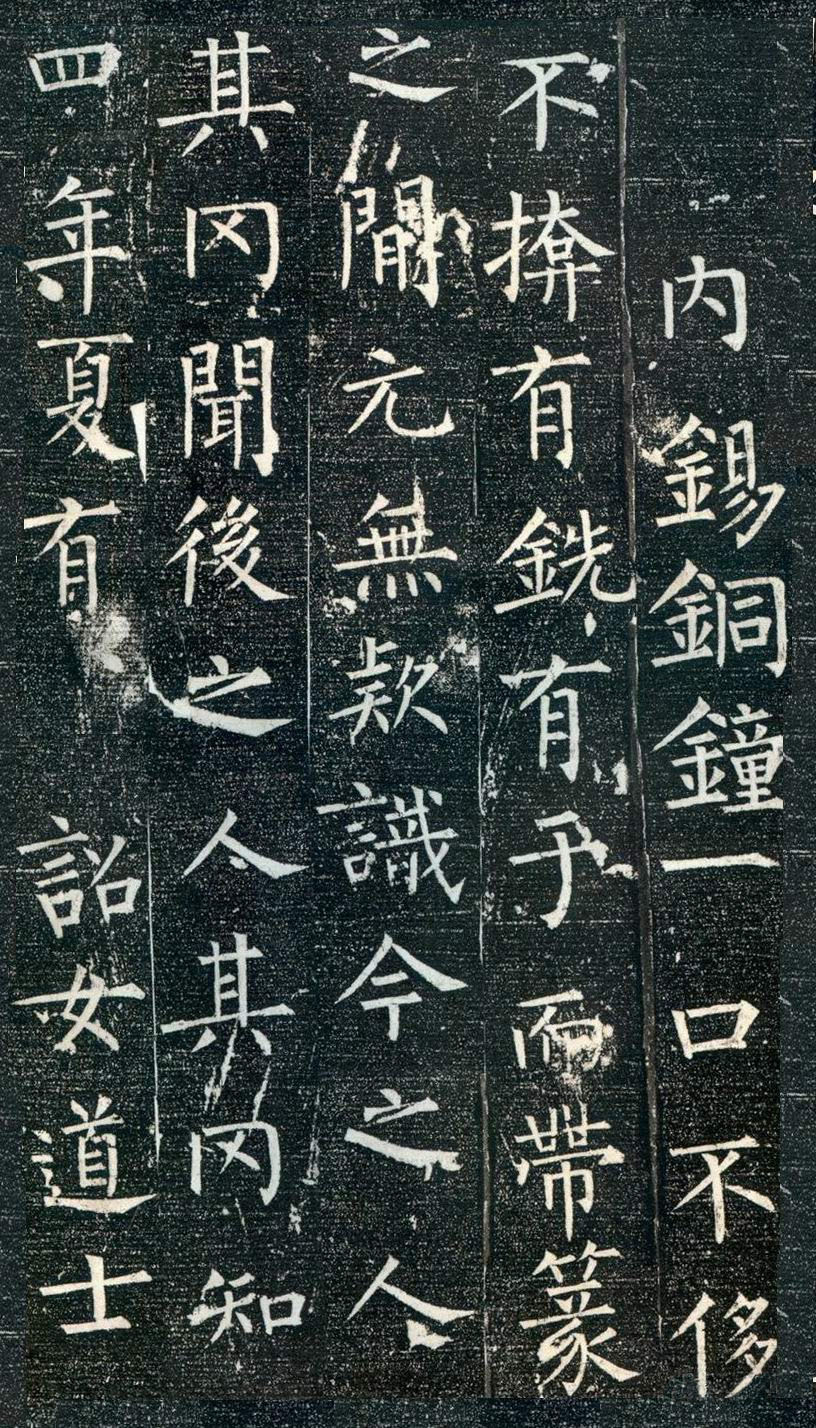 内錫銅鐘一口不侈
不揜有銑有于而帶篆
之間亢無欵識今之人
其罔聞後之人其罔知
四年夏有詔女道士